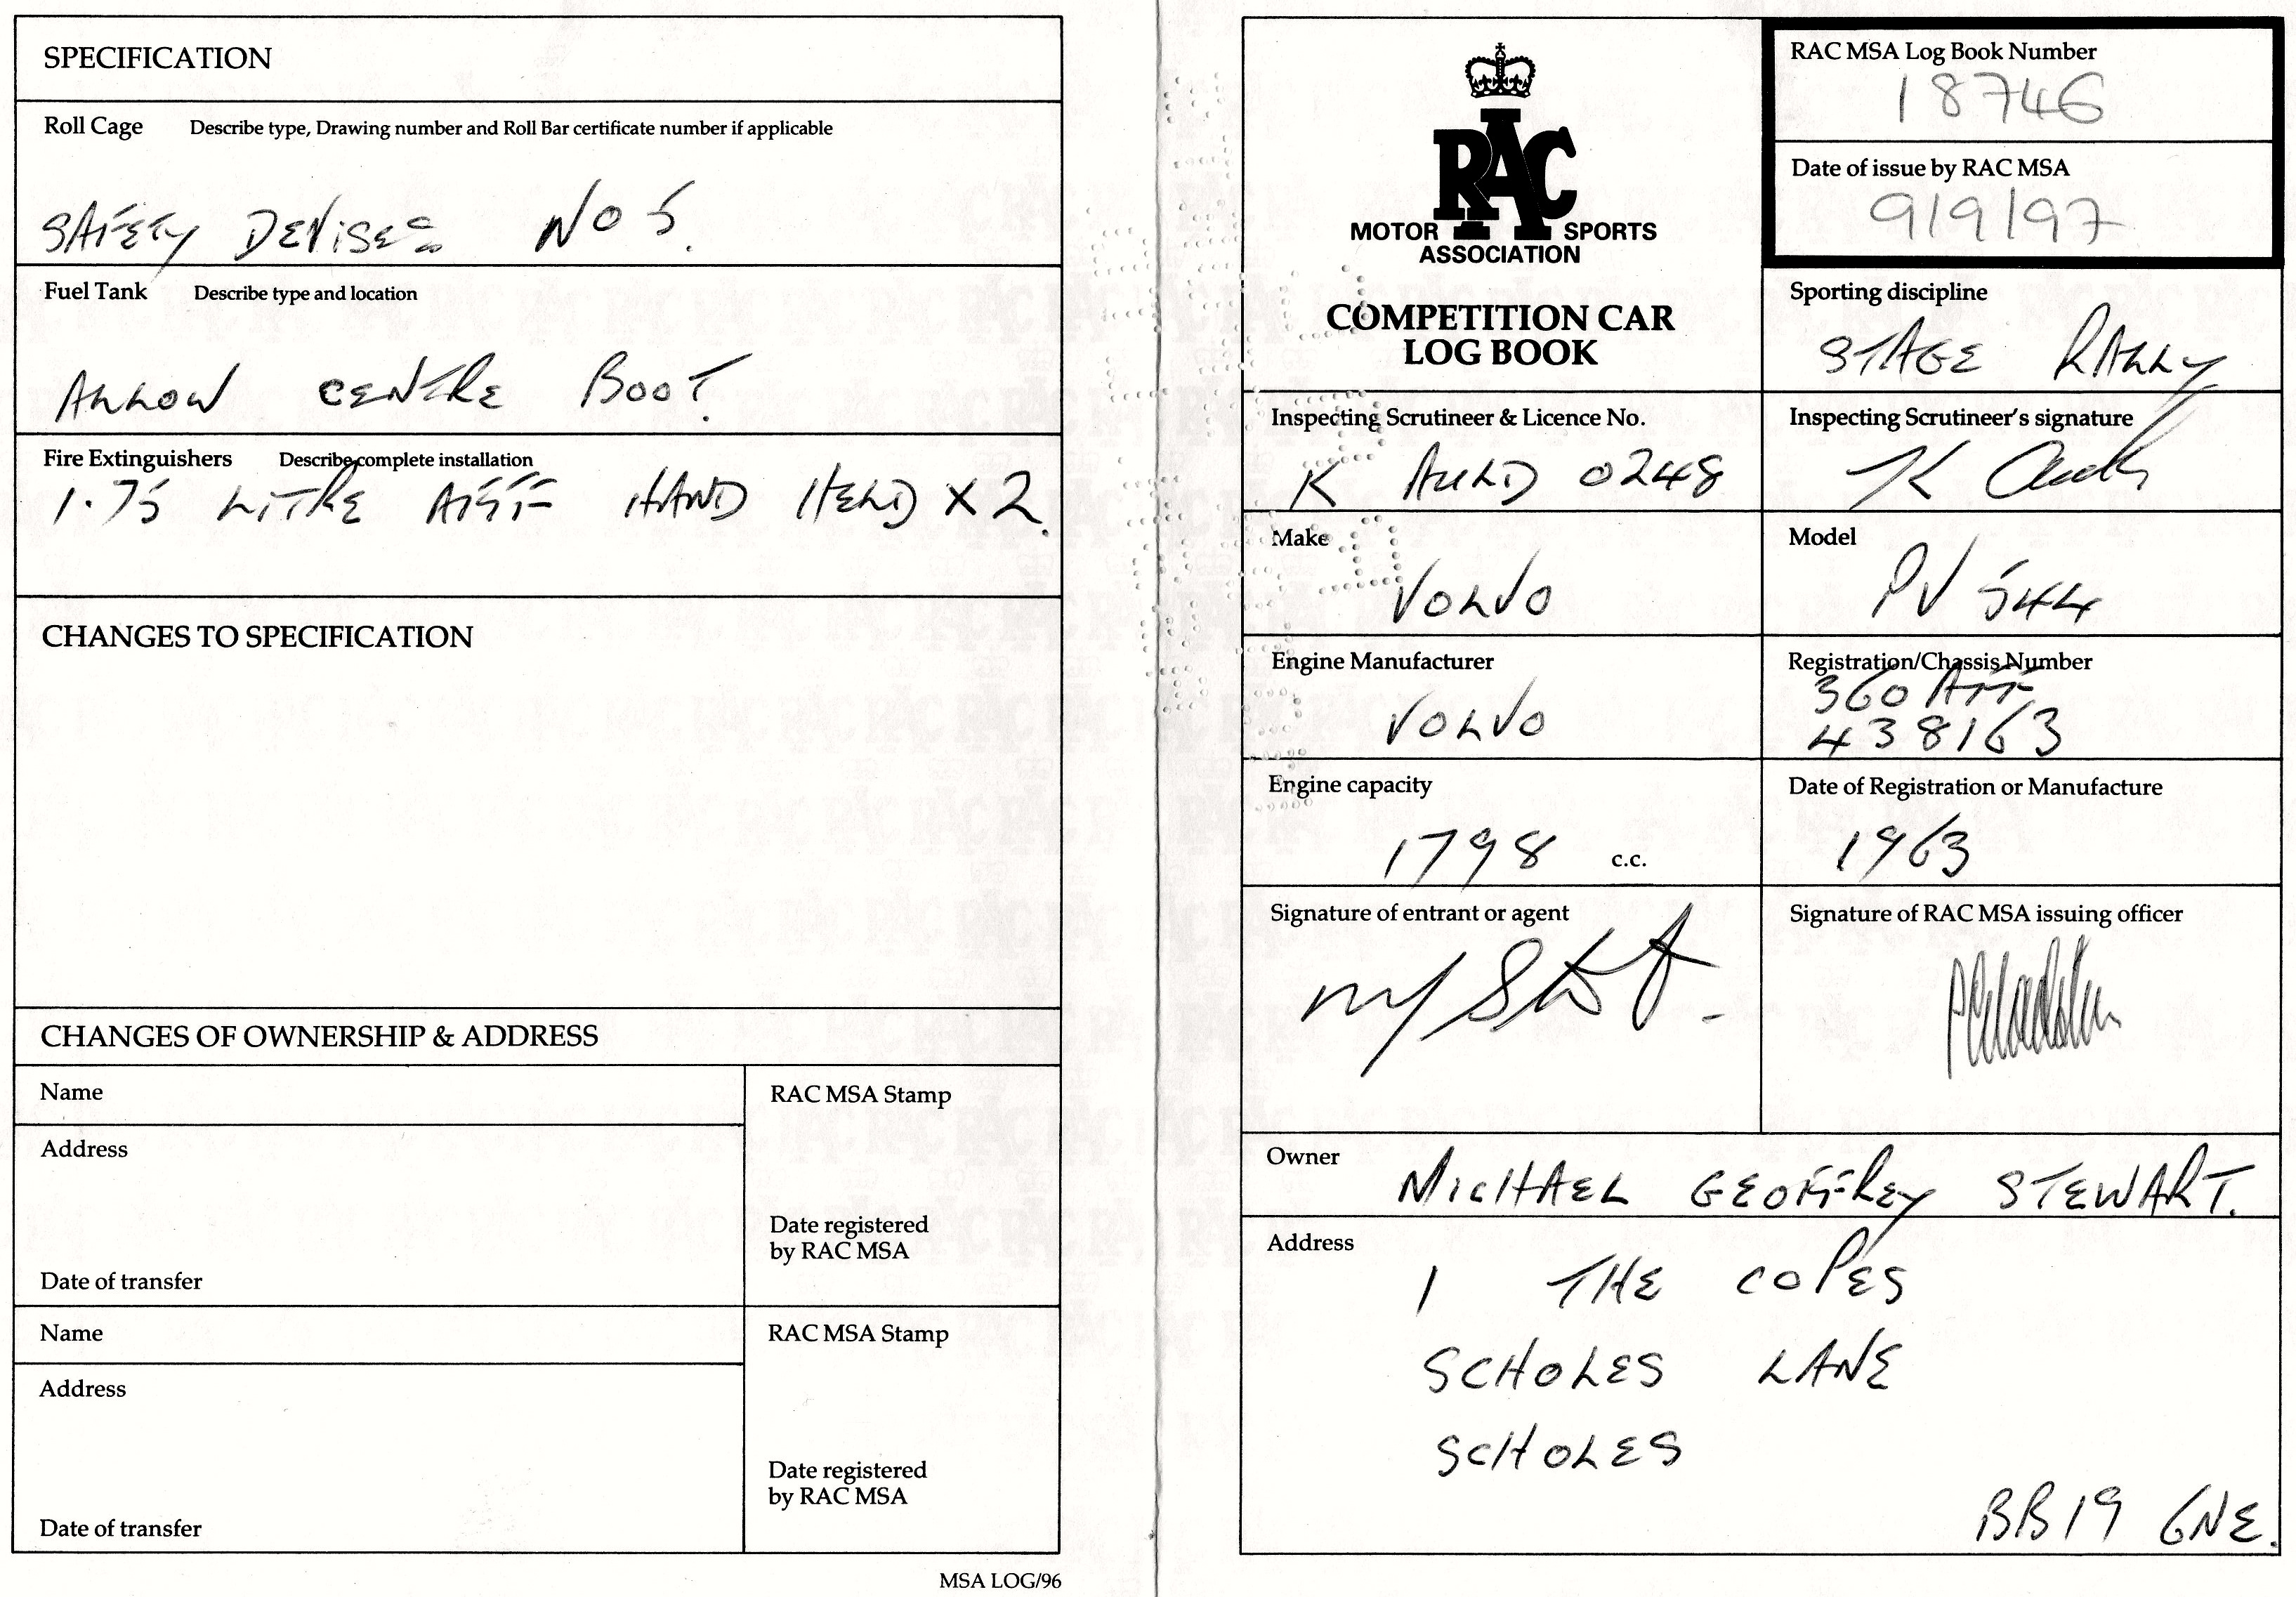 SPECIFICATION
Roll Cage Describe type, Drawing number and Roll Bar certificate number if applicable
SAFETY DEVISES NO 5.
Fuel Tank Describe type and location
ALLOW CENTRE BOOT.
Fire Extinguishers Describe complete installation
1.75 LITRE AFFF HAND HELD X 2.
CHANGES TO SPECIFICATION
CHANGES OF OWNERSHIP & ADDRESS
Name
RAC MSA Stamp
Address
Date registered
by RAC MSA
Date of transfer
Name
RAC MSA Stamp
Address
Date registered
by RAC MSA
Date of transfer
MSA LOG/96
RAC
MOTOR SPORTS
ASSOCIATION
COMPETITION CAR
LOG BOOK
RAC MSA Log Book Number
18746
Date of issue by RAC MSA
9/9/97
Sporting discipline
STAGE RALLY
Inspecting Scrutineer & Licence No.
K AULD 0248
Inspecting Scrutineer's signature
K Auld
Make
VOLVO
Model
PV 544
Engine Manufacturer
VOLVO
Registration/Chassis Number
360 AFF
438163
Engine capacity
1798 c.c.
Date of Registration or Manufacture
1963
Signature of entrant or agent
Signature of RAC MSA issuing officer
Owner
MICHAEL GEOFFREY STEWART.
Address
1 THE COPES
SCHOLES LANE
SCHOLES
BB19 6NE.